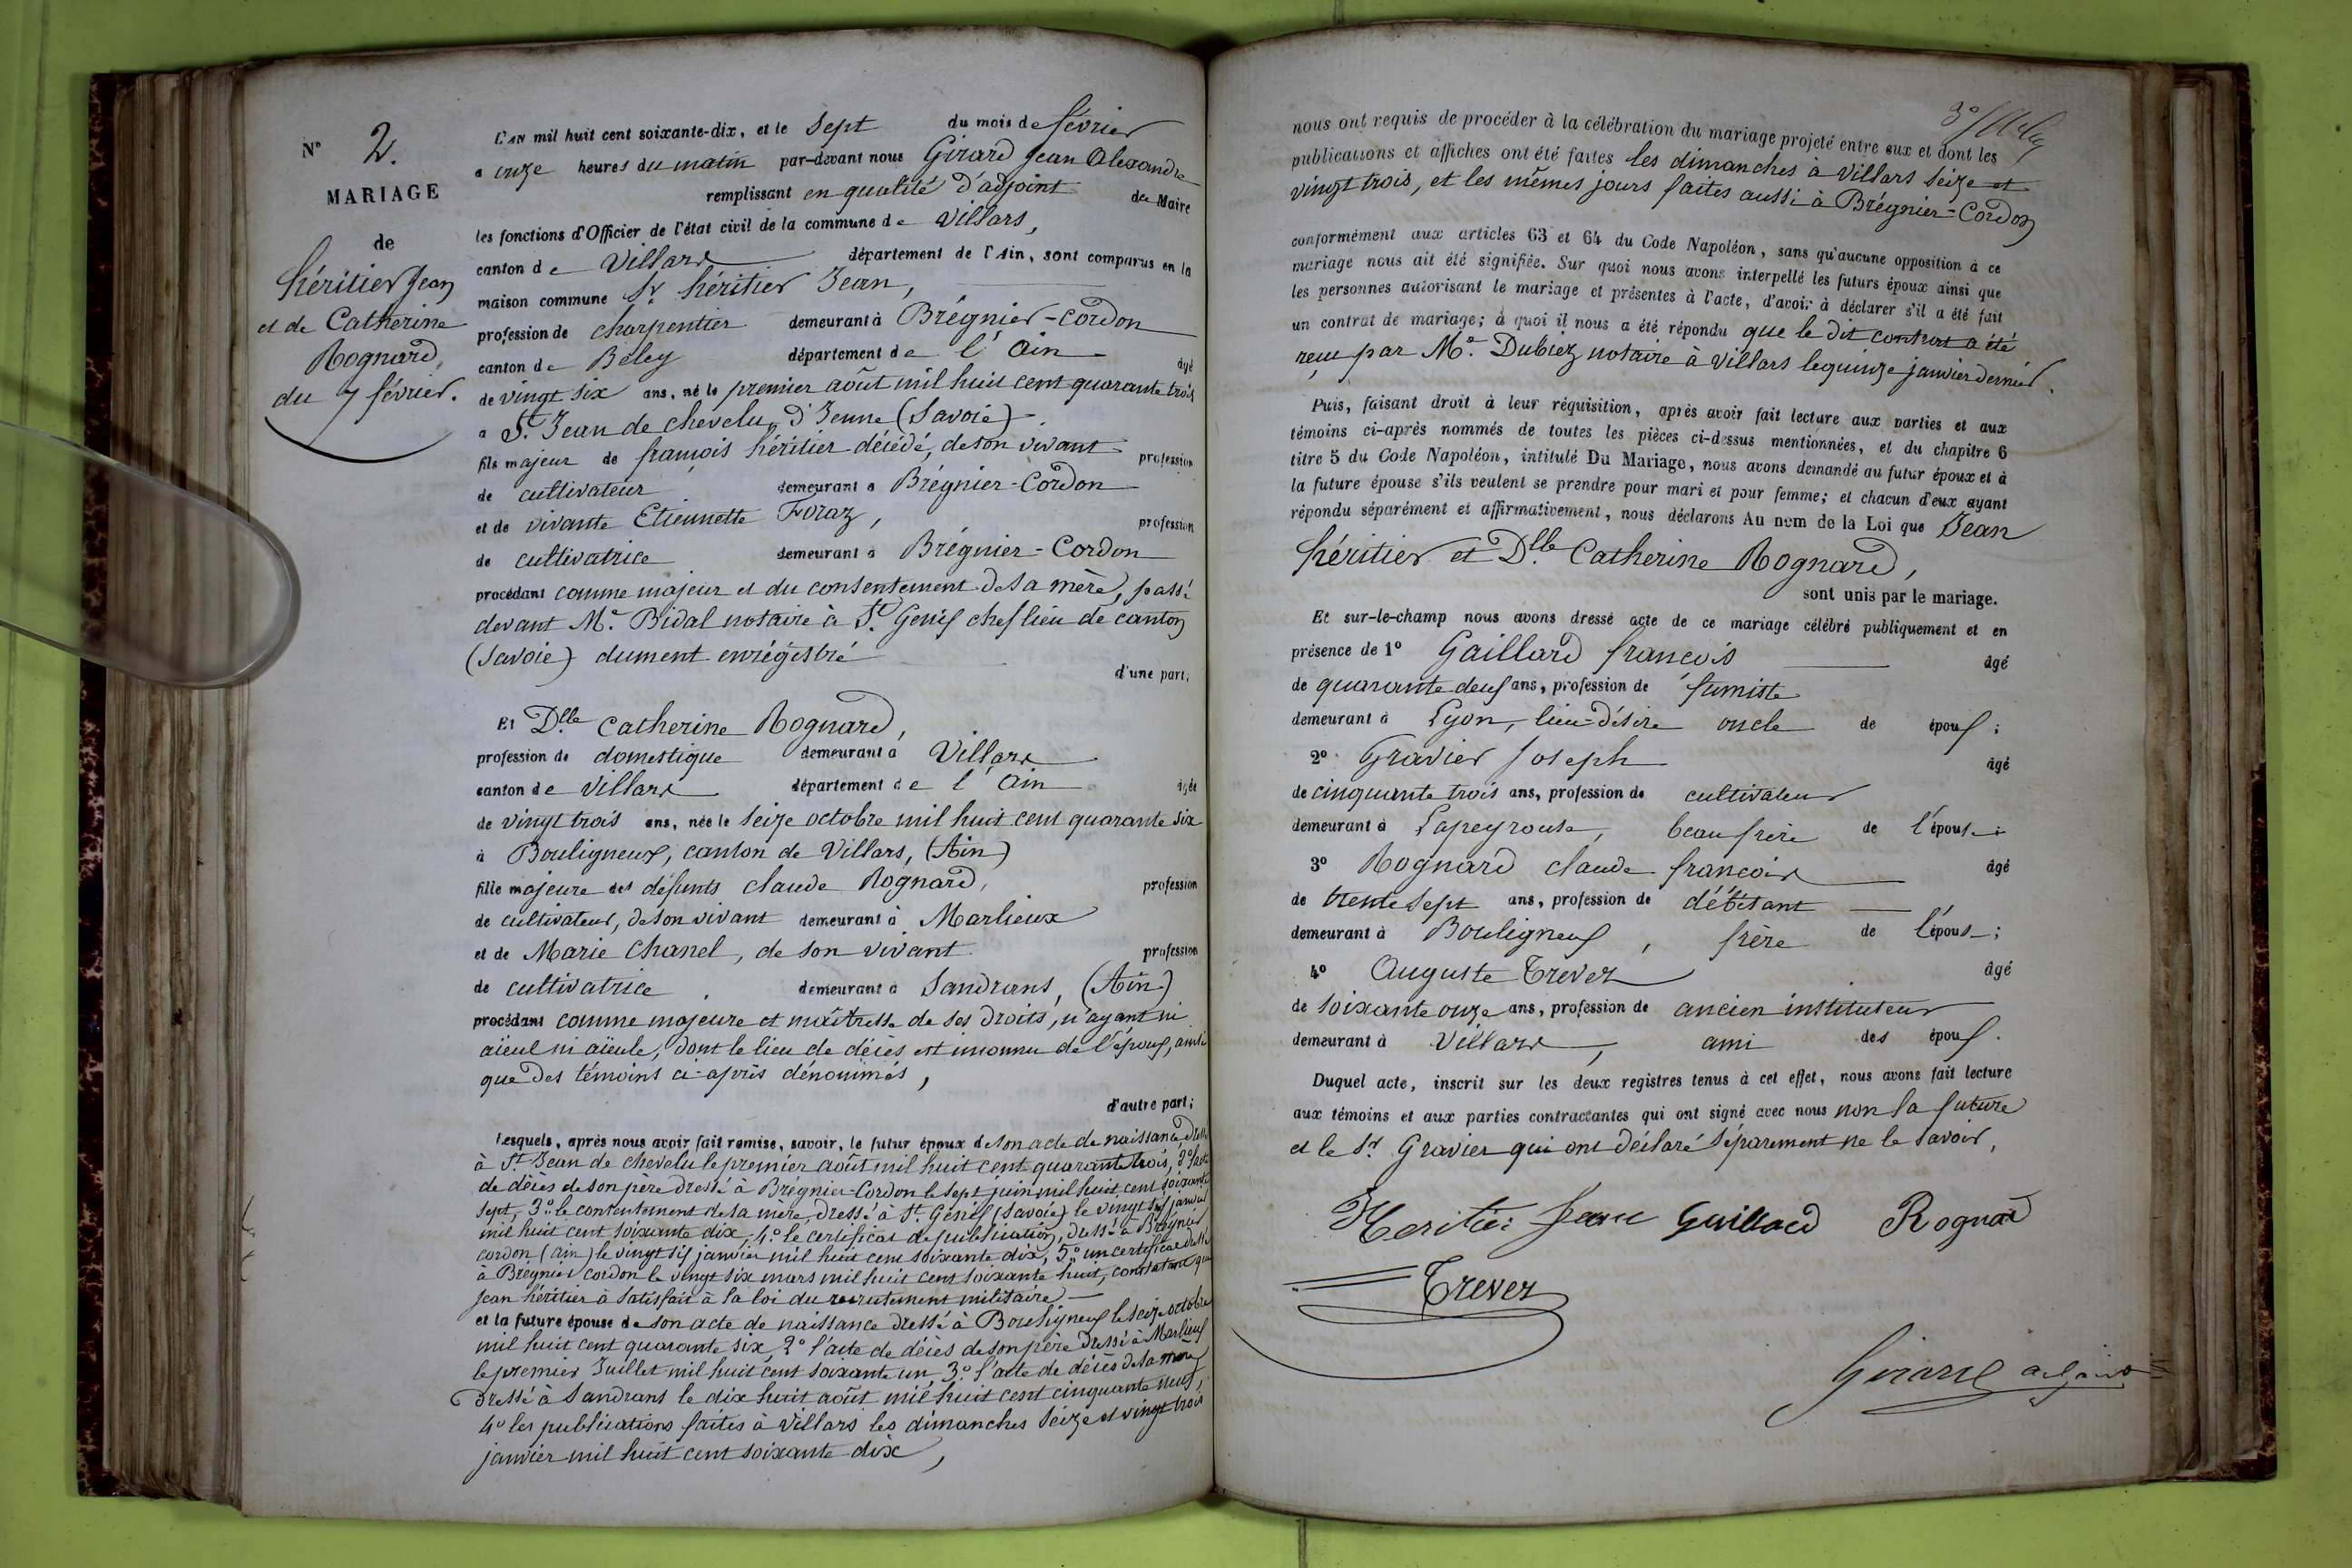 N° 2.
MARIAGE
de
héritier Jean
et de Catherine
Rognard,
du 7 février.
L'an mil huit cent soixante-dix, et le sept du mois de février
a onze heures du matin par-devant nous Girard Jean Alexandre
remplissant en qualité d'adjoint du Maire
les fonctions d'Officier de l'état civil de la commune de Villars,
canton de Villars département de l'Ain, sont comparus en la
maison commune Sr héritier Jean,
profession de charpentier demeurant à Brégnier-Cordon
canton de Beley département de l'Ain âgé
de vingt six ans, né le premier août mil huit cent quarante trois
a St. Jean de chevelu, d'Jenne (Savoie)
fils majeur de françois héritier décédé, de son vivant profession
de cultivateur demeurant a Brégnier-Cordon
et de vivante Etiennette Foraz, profession
de cultivatrice demeurant a Brégnier-Cordon
procédant comme majeur et du consentement de sa mère, passé
devant Me. Bidal notaire à St. Genis chef lieu de canton
(Savoie) dument enrégistré
d'une part,
Et Dlle Catherine Rognard,
profession de domestique demeurant à Villars
canton de Villars département de l'Ain âgée
de vingt trois ans, née le seize octobre mil huit cent quarante six
à Bouligneux, canton de Villars, (Ain)
fille majeure des défunts claude Rognard, profession
de cultivateur, de son vivant demeurant à Marlieux
et de Marie Chanel, de son vivant profession
de cultivatrice demeurant à Sandrans, (Ain)
procédant comme majeure et maîtresse de ses droits, n'ayant ni
aïeul ni aïeule, dont le lieu de décès est inconnu de l'époux, ainsi
que des témoins ci-après dénommés,
d'autre part;
Lesquels, après nous avoir fait remise, savoir, le futur époux de son acte de naissance, dressé
à St. Jean de chevelu le premier août mil huit cent quarante trois, 2° l'acte
de décès de son père dressé à Brégnier-Cordon le sept juin mil huit cent soixante
sept, 3° le consentement de sa mère, dressé à St. Genis (Savoie) le vingt six janvier
mil huit cent soixante dix, 4° le certificat de publication, dressé à Brégnier
cordon (ain) le vingt six janvier mil huit cent soixante dix, 5° un certificat dressé
à Brégnier cordon le vingt six mars mil huit cent soixante huit, constatant que
Jean héritier à satisfait à la loi du recrutement militaire
et la future épouse de son acte de naissance dressé à Bouligneux le seize octobre
mil huit cent quarante six, 2° l'acte de décès de son père dressé à Marlieux
le premier Juillet mil huit cent soixante un, 3° l'acte de décès de sa mère
Dressé à Sandrans le dix huit août mil huit cent cinquante neuf,
4° les publications faites à Villars les dimanches seize et vingt trois
janvier mil huit cent soixante dix,
nous ont requis de procéder à la célébration du mariage projeté entre eux et dont les
publications et affiches ont été faites les dimanches à Villars seize et
vingt trois, et les mêmes jours faites aussi à Brégnier-Cordon
conformément aux articles 63 et 64 du Code Napoléon, sans qu'aucune opposition à ce
mariage nous ait été signifiée. Sur quoi nous avons interpellé les futurs époux ainsi que
les personnes autorisant le mariage et présentes à l'acte, d'avoir à déclarer s'il a été fait
un contrat de mariage; à quoi il nous a été répondu que le dit contrat a été
reçu par Me. Dubiez notaire à Villars le quinze janvier dernier.
Puis, faisant droit à leur réquisition, après avoir fait lecture aux parties et aux
témoins ci-après nommés de toutes les pièces ci-dessus mentionnées, et du chapitre 6
titre 5 du Code Napoléon, intitulé Du Mariage, nous avons demandé au futur époux et à
la future épouse s'ils veulent se prendre pour mari et pour femme; et chacun d'eux ayant
répondu séparément et affirmativement, nous déclarons Au nom de la Loi que Jean
héritier et Dlle Catherine Rognard,
sont unis par le mariage.
Et sur-le-champ nous avons dressé acte de ce mariage célébré publiquement et en
présence de 1° Gaillard françois âgé
de quarante deux ans, profession de fumiste
demeurant à Lyon, oncle de époux;
2° Gravier Joseph âgé
de cinquante trois ans, profession de cultivateur
demeurant à Lapeyrouse, beau frère de l'épouse;
3° Rognard claude françois âgé
de trente sept ans, profession de débitant
demeurant à Bouligneux, frère de l'épouse;
4° Auguste Trevez âgé
de soixante onze ans, profession de ancien instituteur
demeurant à Villars, ami des époux.
Duquel acte, inscrit sur les deux registres tenus à cet effet, nous avons fait lecture
aux témoins et aux parties contractantes qui ont signé avec nous non la future
et le Sr. Gravier qui ont déclaré séparement ne le savoir,
Heritier Jean Gaillard Rognard
Trevez
Girard adjoint